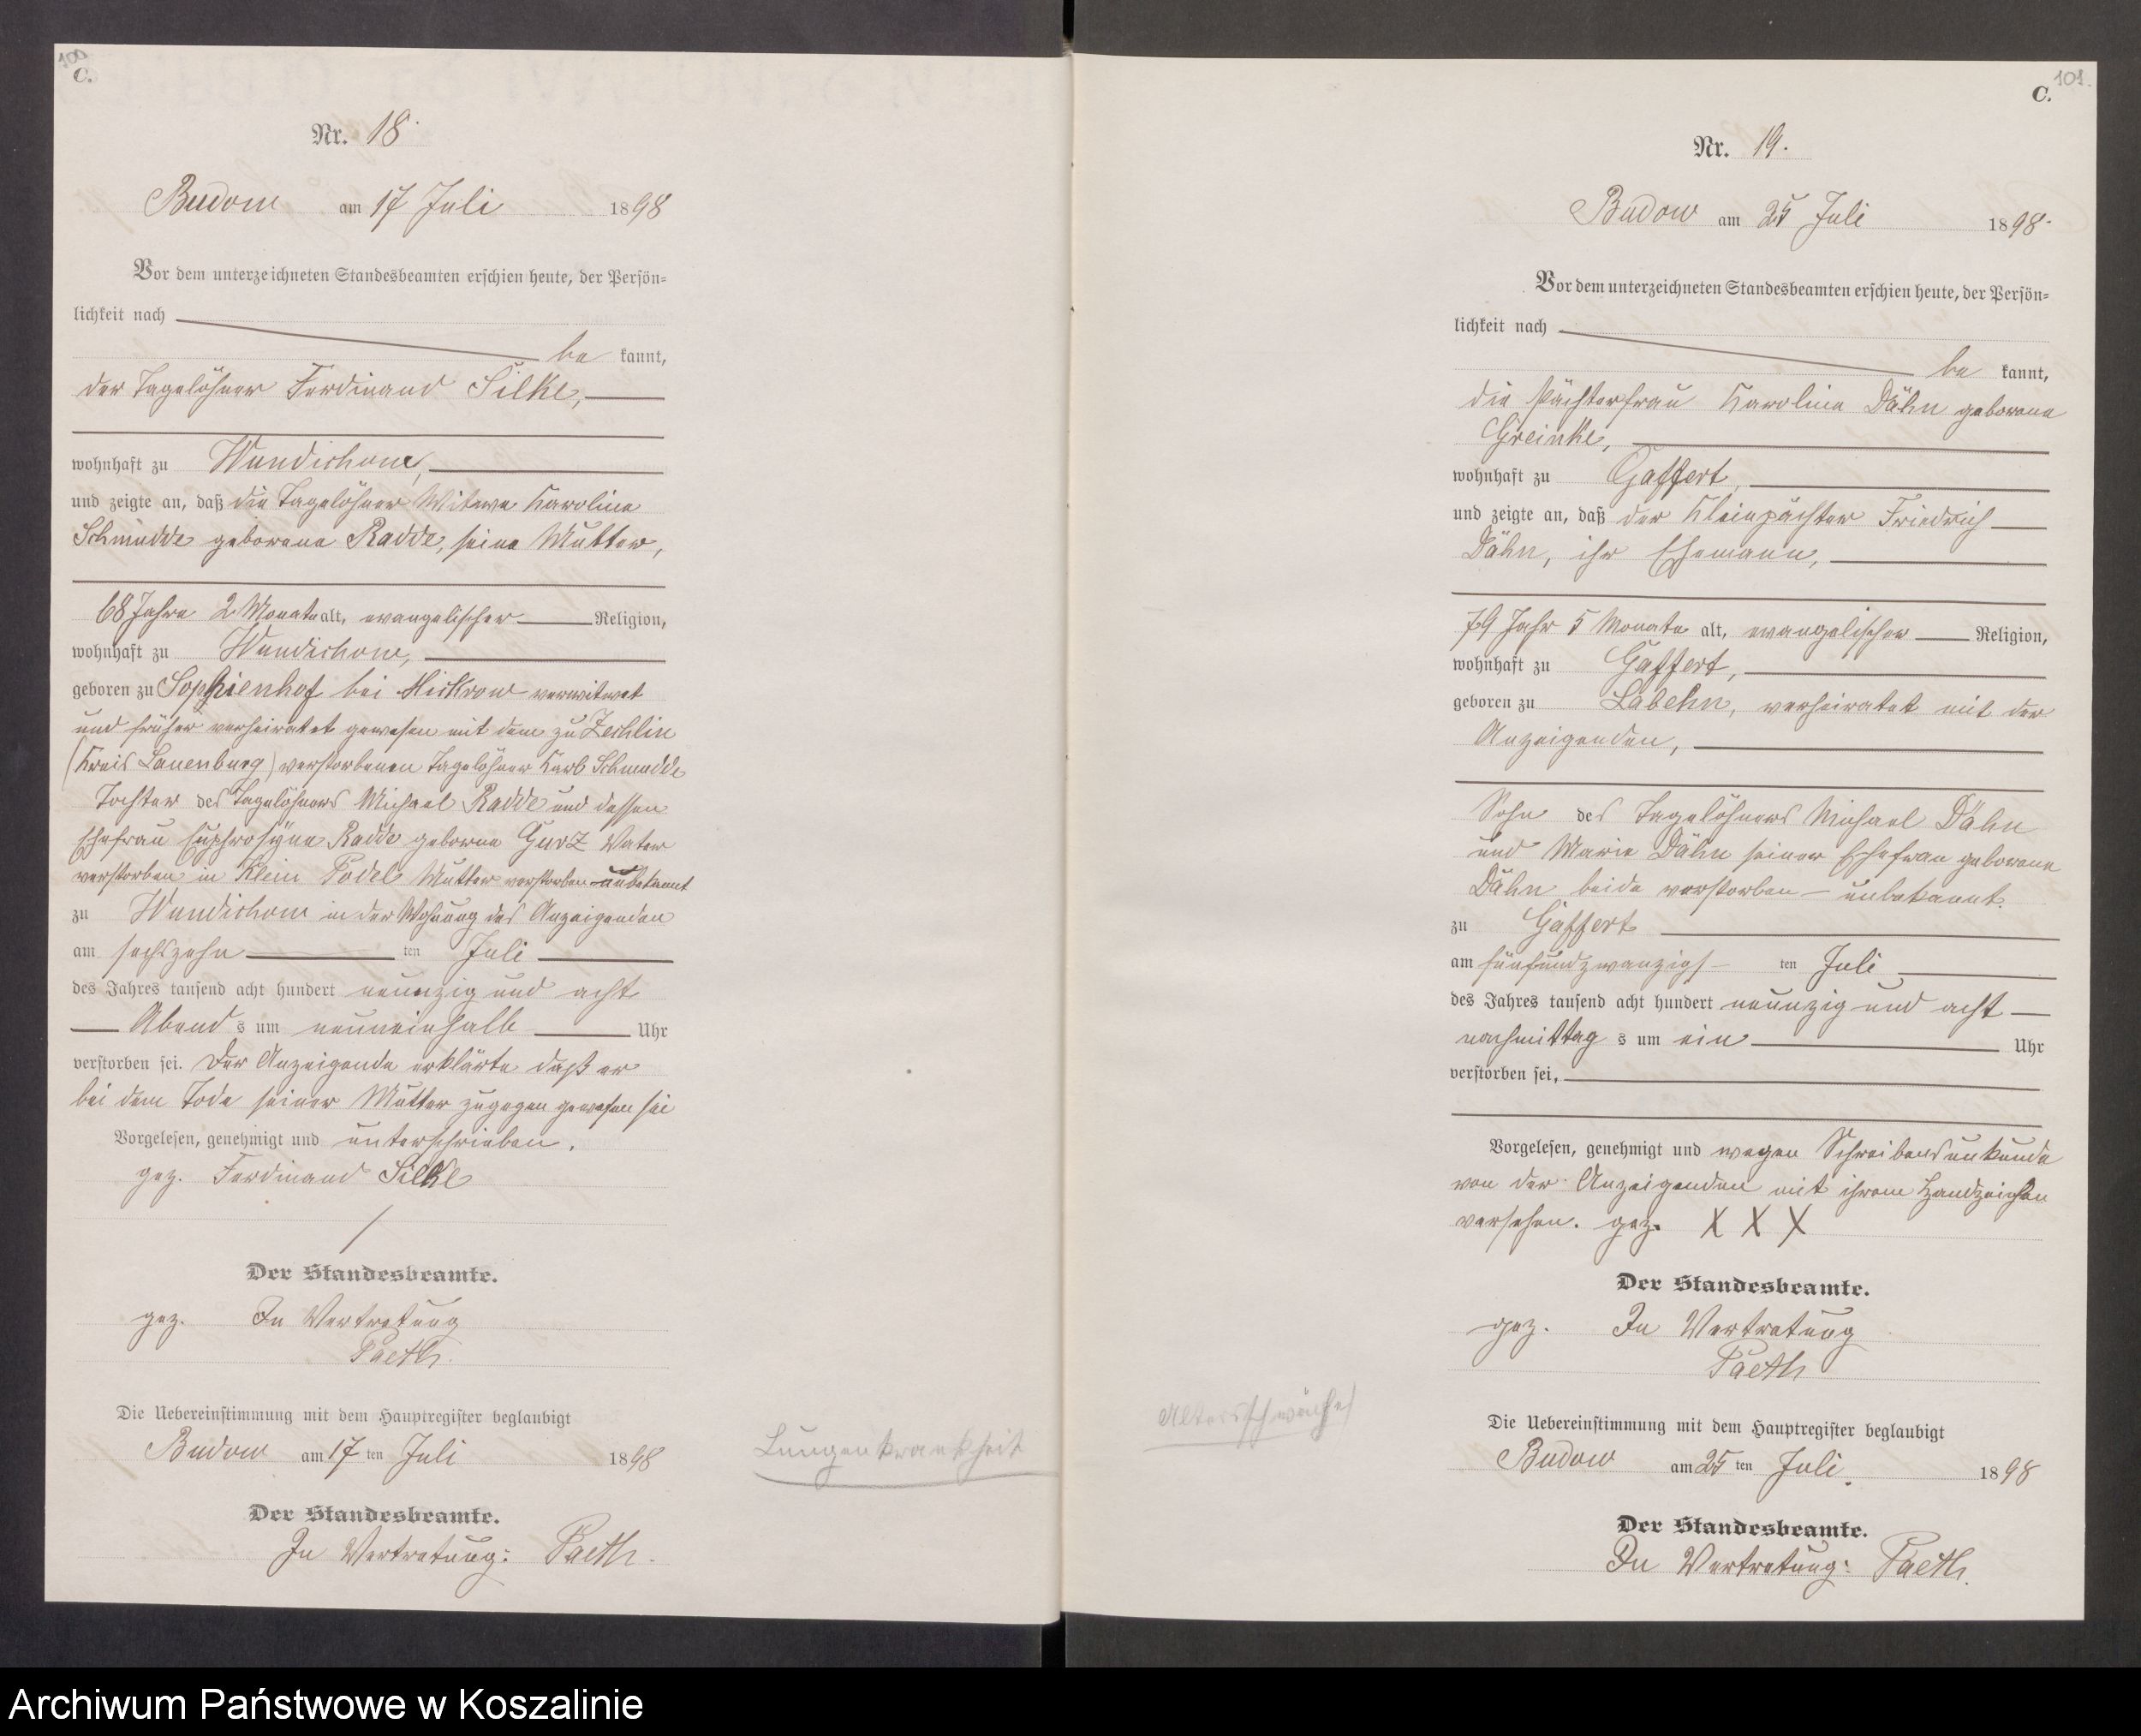 100
C.
Nr. 18.
Budow am 17 Juli 1898
Vor dem unterzeichneten Standesbeamten erschien heute, der Persön-
lichkeit nach
be kannt,
der Tagelöhner Ferdinand Silke,
wohnhaft zu Wundichow,
und zeigte an, daß die Tagelöhner Witwe Karoline
Schmudde geborene Radde, seine Mutter,
68 Jahre 2 Monate alt, evangelischer Religion,
wohnhaft zu Wundichow,
geboren zu Sophienhof bei Mickrow verwitwet
und früher verheiratet gewesen mit dem zu Zechlin
(Kreis Lauenburg) verstorbenen Tagelöhner Karl Schmudde
Tochter des Tagelöhners Michael Radde und dessen
Ehefrau Euphrosyne Radde geborne Gurz Vater
verstorben in Klein Podel Mutter verstorben unbekannt
zu Wundichow in der Wohnung des Anzeigenden
am sechszehn ten Juli
des Jahres tausend acht hundert neunzig und acht
Abend s um neuneinhalb Uhr
verstorben sei. Der Anzeigende erklärte daß er
bei dem Tode seiner Mutter zugegen gewesen sei
Vorgelesen, genehmigt und unterschrieben.
gez. Ferdinand Silke
Der Standesbeamte.
gez. In Vertretung
Paeth.
Die Uebereinstimmung mit dem Hauptregister beglaubigt
Budow am 17 ten Juli 1898
Der Standesbeamte.
In Vertretung: Paeth.
Lungenkrankheit
101.
C.
Nr. 19.
Budow am 25 Juli 1898.
Vor dem unterzeichneten Standesbeamten erschien heute, der Persön-
lichkeit nach
be kannt,
die Pächterfrau Karoline Dähn geborene
Greinke,
wohnhaft zu Gaffert,
und zeigte an, daß der Kleinpächter Friedrich
Dähn, ihr Ehemann,
79 Jahr 5 Monate alt, evangelischer Religion,
wohnhaft zu Gaffert,
geboren zu Labehn, verheiratet mit der
Anzeigenden,
Sohn des Tagelöhners Michael Dähn
und Marie Dähn seiner Ehefrau geborene
Dähn beide verstorben – unbekannt.
zu Gaffert
am fünfundzwanzigs ten Juli
des Jahres tausend acht hundert neunzig und acht
nachmittag s um ein Uhr
verstorben sei,
Vorgelesen, genehmigt und wegen Schreibensunkunde
von der Anzeigenden mit ihrem Handzeichen
versehen. gez. X X X
Der Standesbeamte.
gez. In Vertretung
Paeth
Die Uebereinstimmung mit dem Hauptregister beglaubigt
Budow am 25 ten Juli. 1898
Der Standesbeamte.
In Vertretung: Paeth.
Altersschwäche
Archiwum Państwowe w Koszalinie